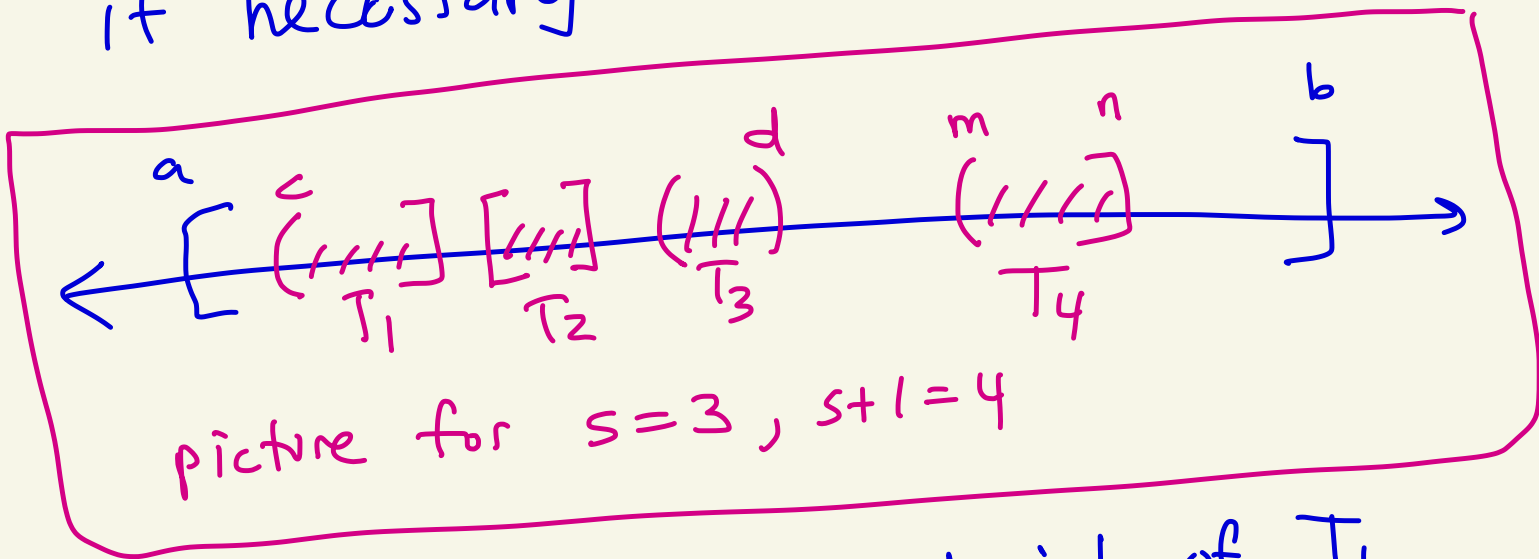 if necessary
a [ c ( ] [ ] ( ) d m ( ] n b ]
T1 T2 T3 T4
picture for s=3, s+1=4
of T